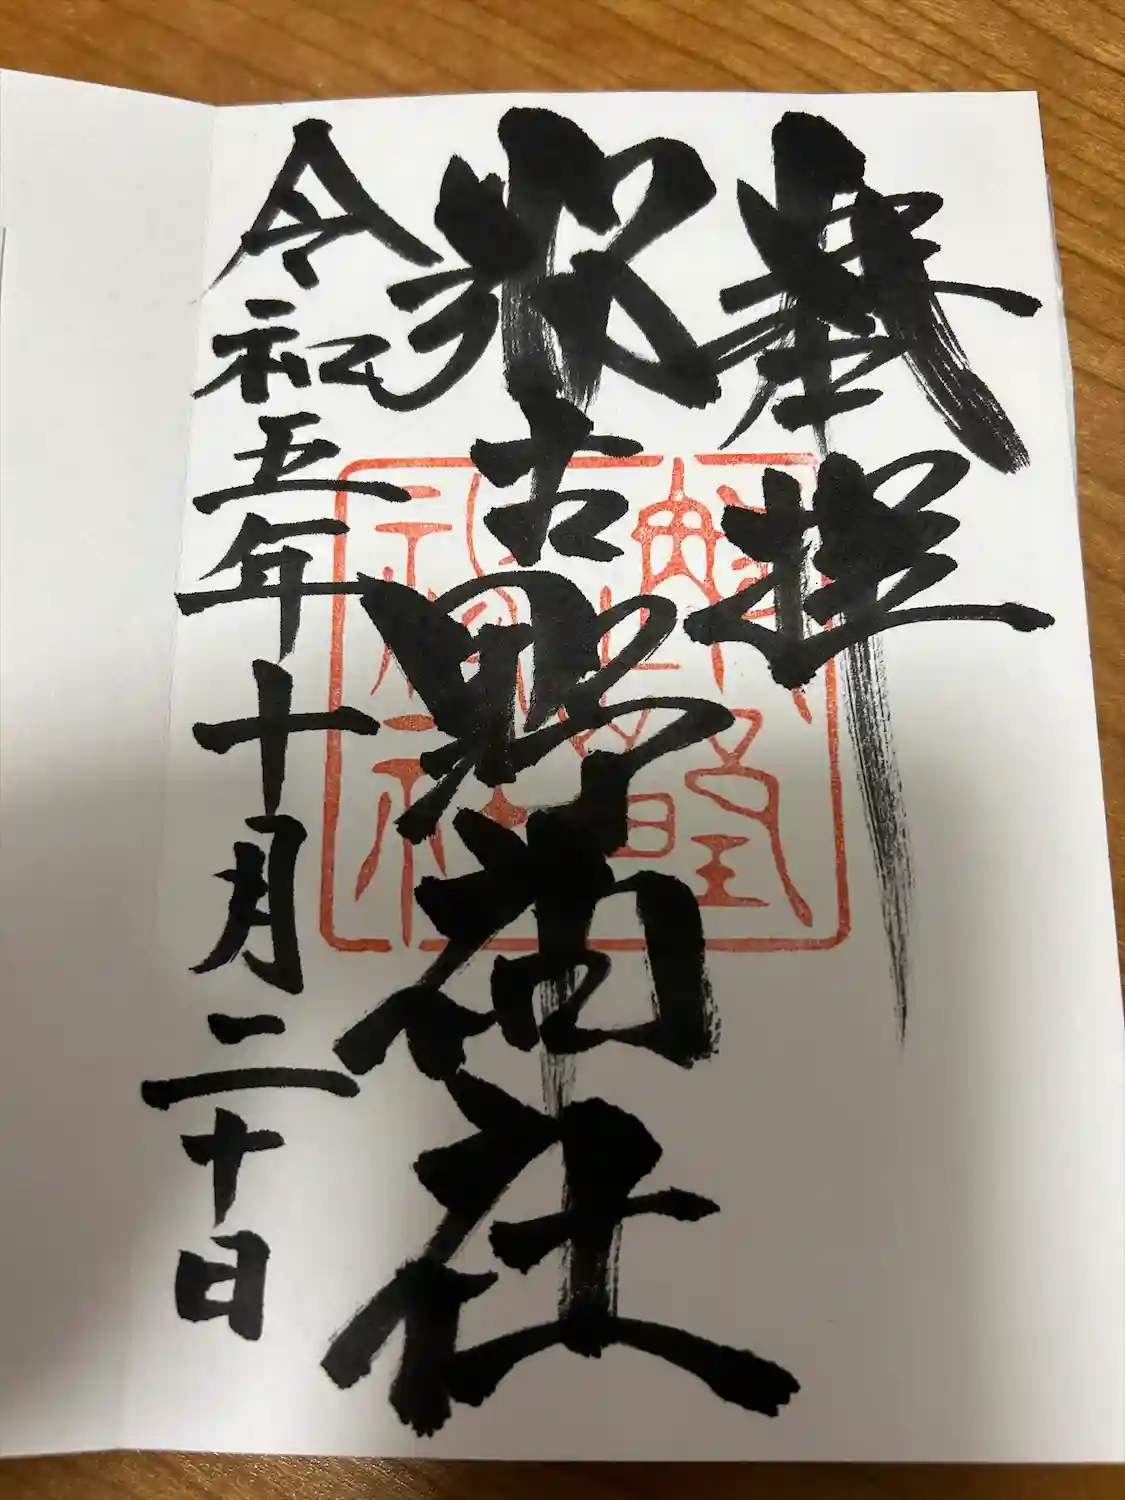 奉拝
那古野神社
令和五年十月二十日